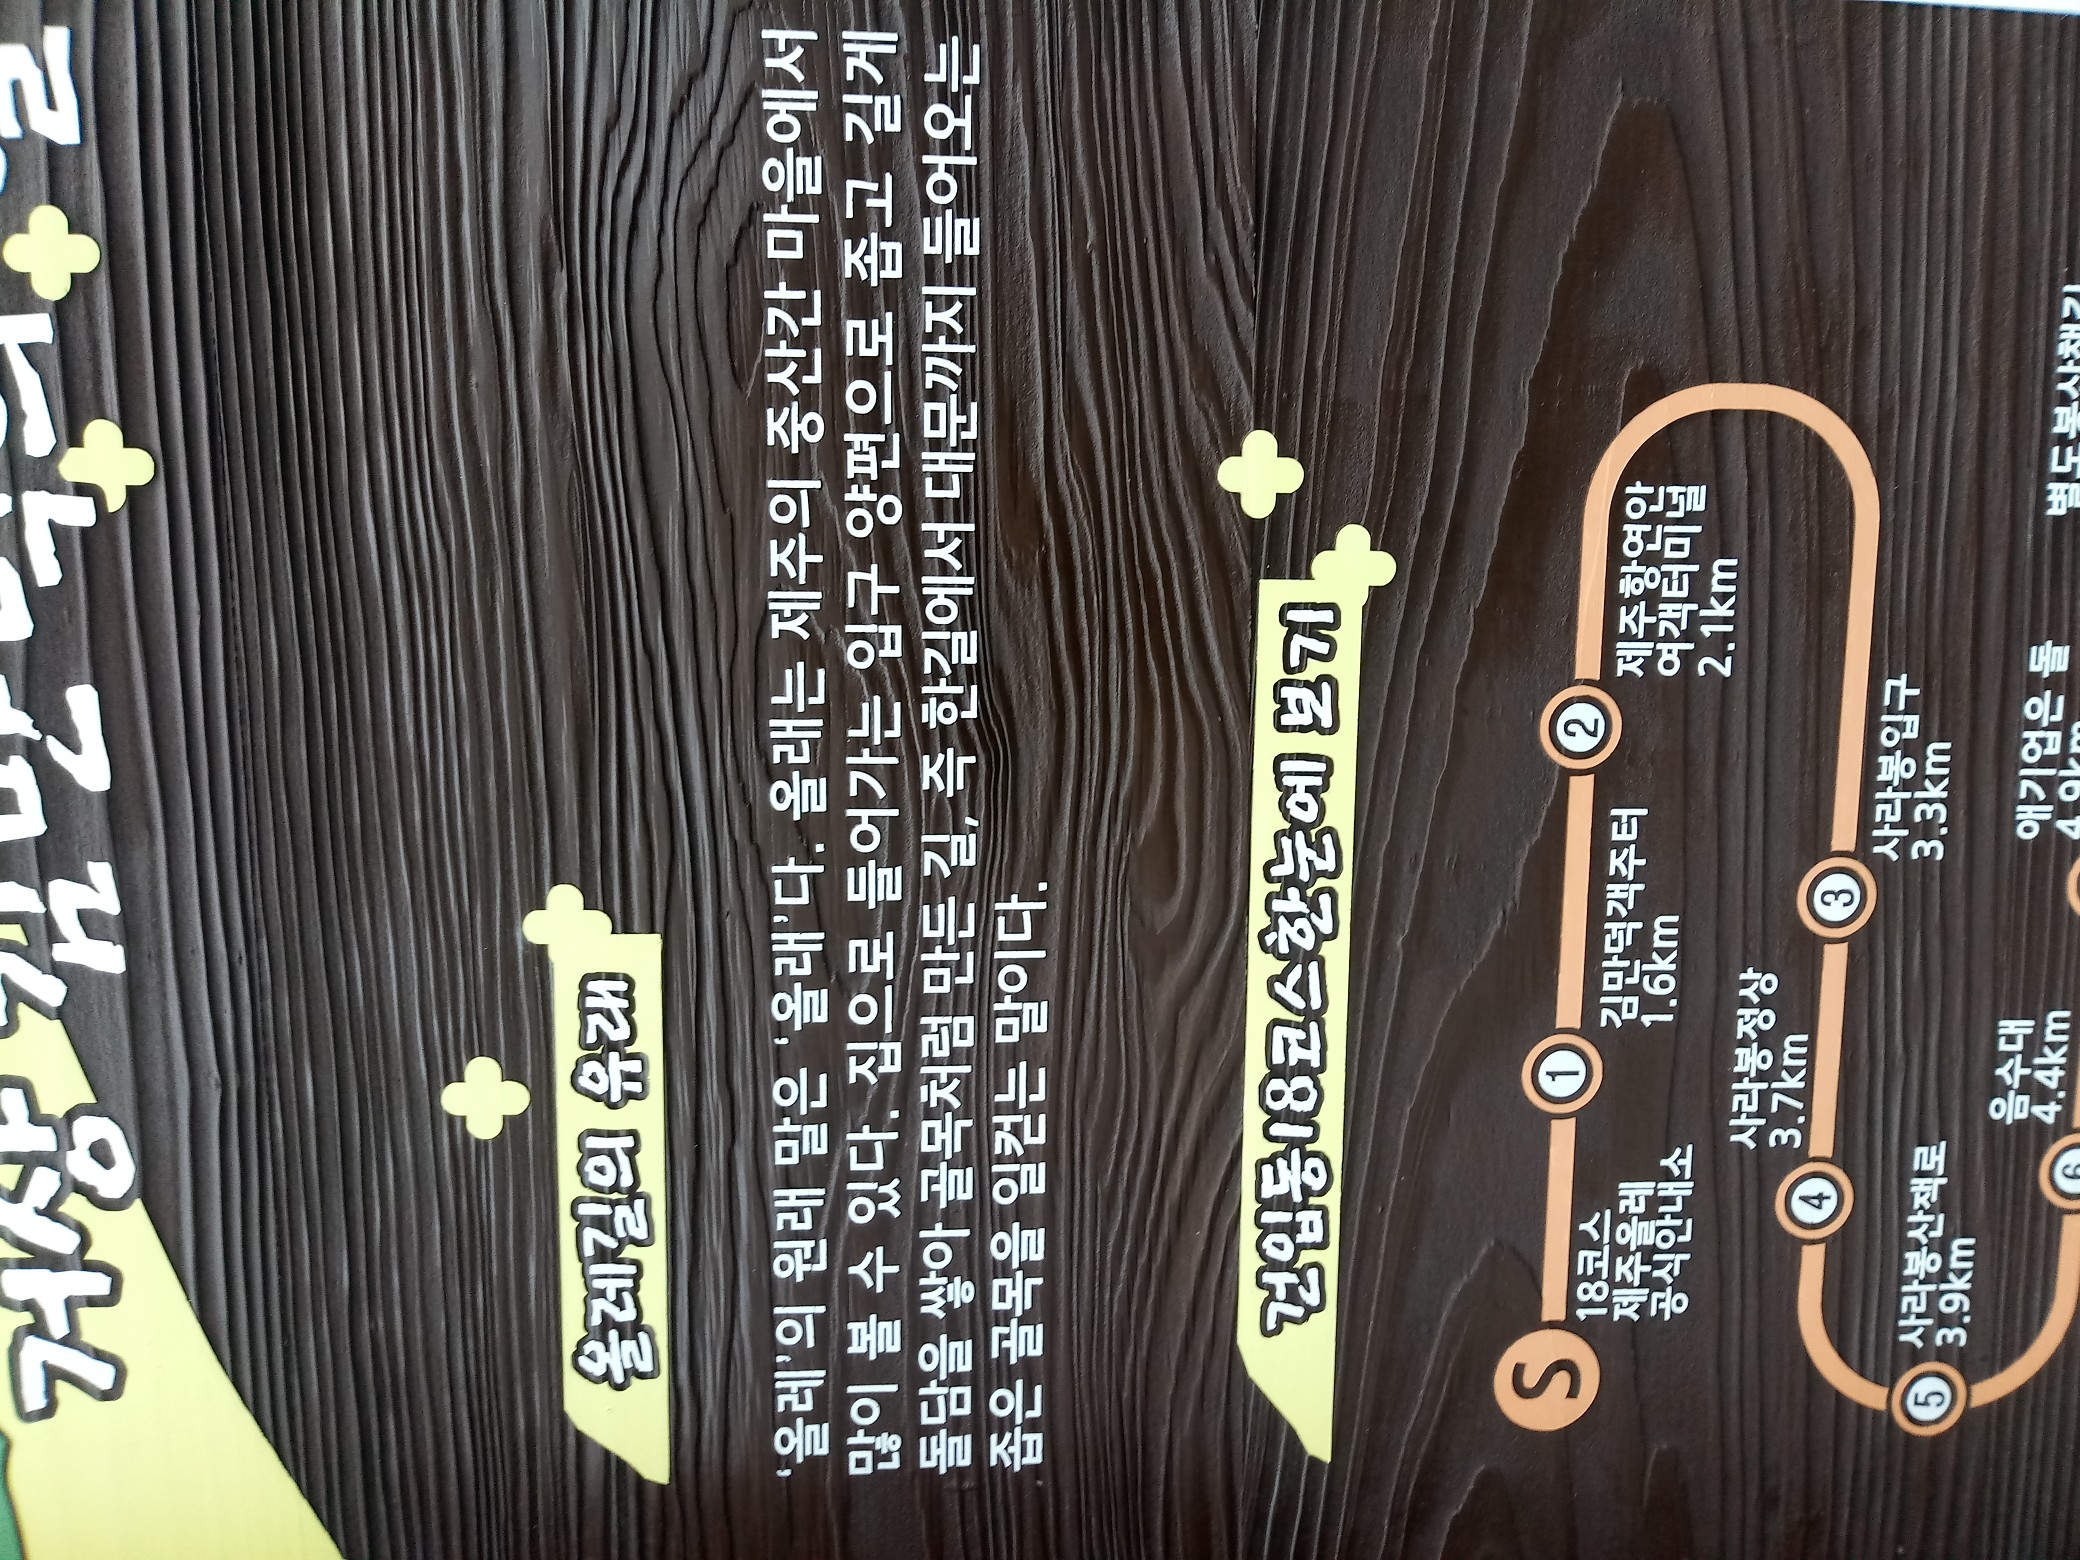 거상
올레길의 유래
'올레'의 원래 말은 '올래'다. 올래는 제주의 중산간 마을에서
많이 볼 수 있다. 집으로 들어가는 입구 양편으로 좁고 길게
돌담을 쌓아 골목처럼 만든 길, 즉 한길에서 대문까지 들어오는
좁은 골목을 일컫는 말이다.
건입동18코스한눈에 보기
S
1
2
18코스
제주올레
공식안내소
김만덕객주터
1.6km
제주항연안
여객터미널
2.1km
사라봉정상
3.7km
4
3
사라봉입구
3.3km
5
사라봉산책로
3.9km
음수대
4.4km
6
애기업은 돌
4.9km
별도봉산책길